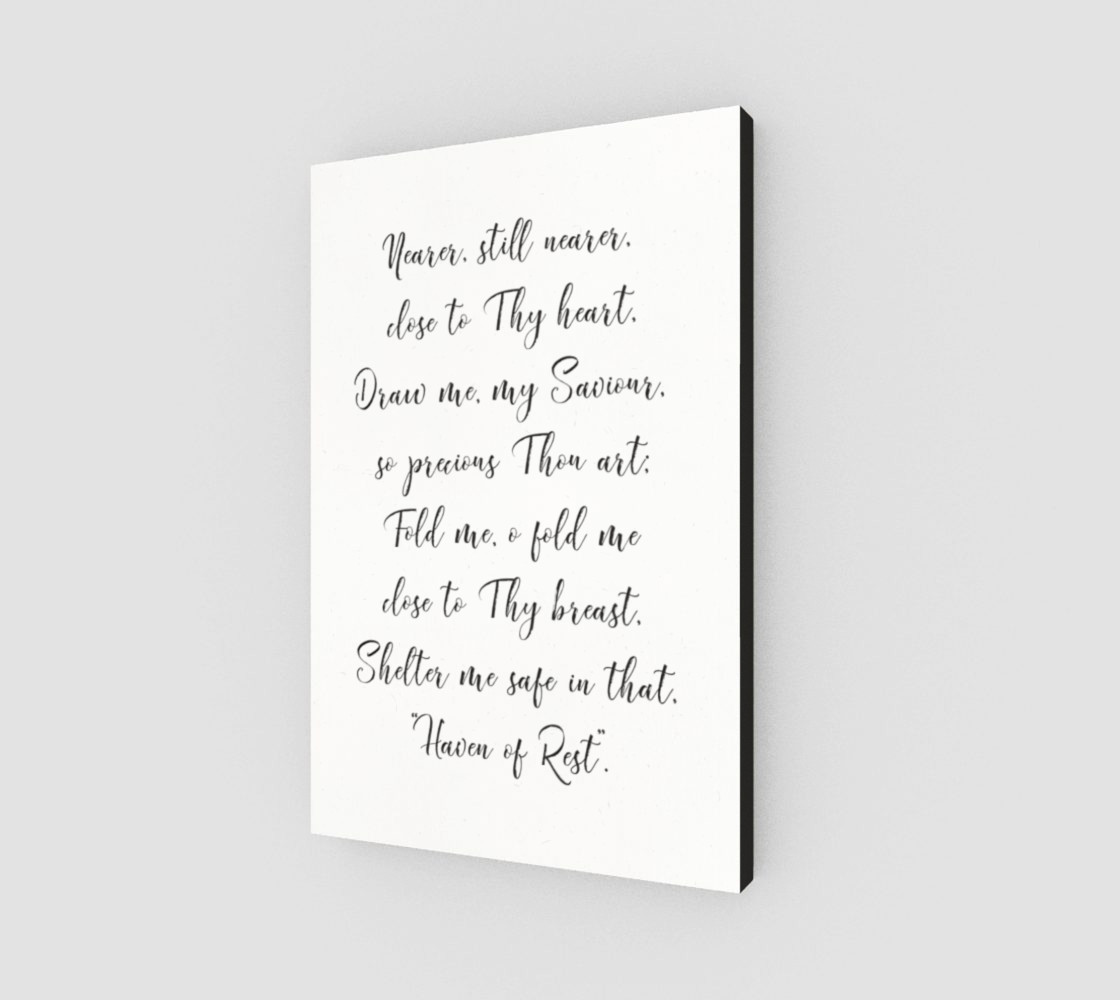 Nearer, still nearer,
close to Thy heart,
Draw me, my Saviour,
so precious Thou art;
Fold me, o fold me
close to Thy breast,
Shelter me safe in that,
"Haven of Rest".